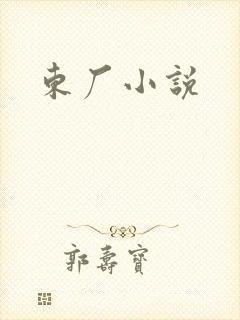 東厂小説
郭壽寶